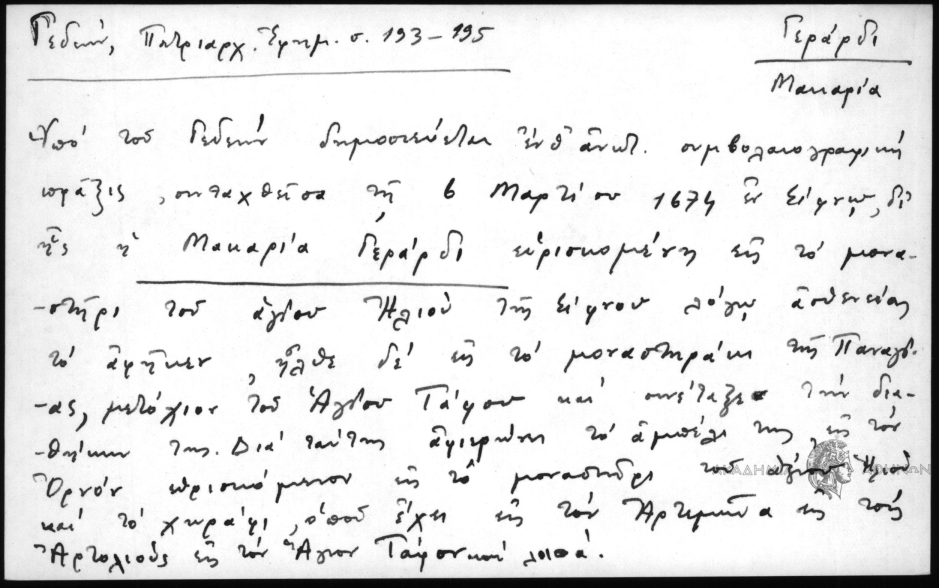 Γεδεών, Πατριαρχ. Ἐφημ. σ. 193-195
Γεράρδι
Μακαρία
Ὑπό τοῦ Γεδεών δημοσιεύεται ἐνθ' ἀνωτ. συμβολαιογραφική
πρᾶξις, συνταχθεῖσα τῇ 6 Μαρτίου 1674 ἐν Σίφνῳ, δι'
ἧς ἡ Μακαρία Γεράρδι εὑρισκομένη εἰς τό μονα-
-στῆρι τοῦ ἁγίου Ἠλιοῦ τῆς Σίφνου λόγῳ ἀσθενείας
τό ἀφῆκεν, ἦλθε δέ εἰς τό μοναστηράκι τῆς Παναγί-
-ας, μετόχιον τοῦ Ἁγίου Τάφου καί συνέταξε τήν δια-
-θήκην της. Διά ταύτης ἀφιερώνει τό ἀμπέλι της, εἰς τόν
Ὀρνόν εὑρισκόμενον εἰς τό μοναστῆρι τοῦ ἁγίου Ἠλιοῦ
καί τό χωράφι, ὁποῦ ἔχει εἰς τόν Ἀρτεμῶνα εἰς τούς
Ἀρτολιούς εἰς τόν Ἅγιον Τάφον καί λοιπά.